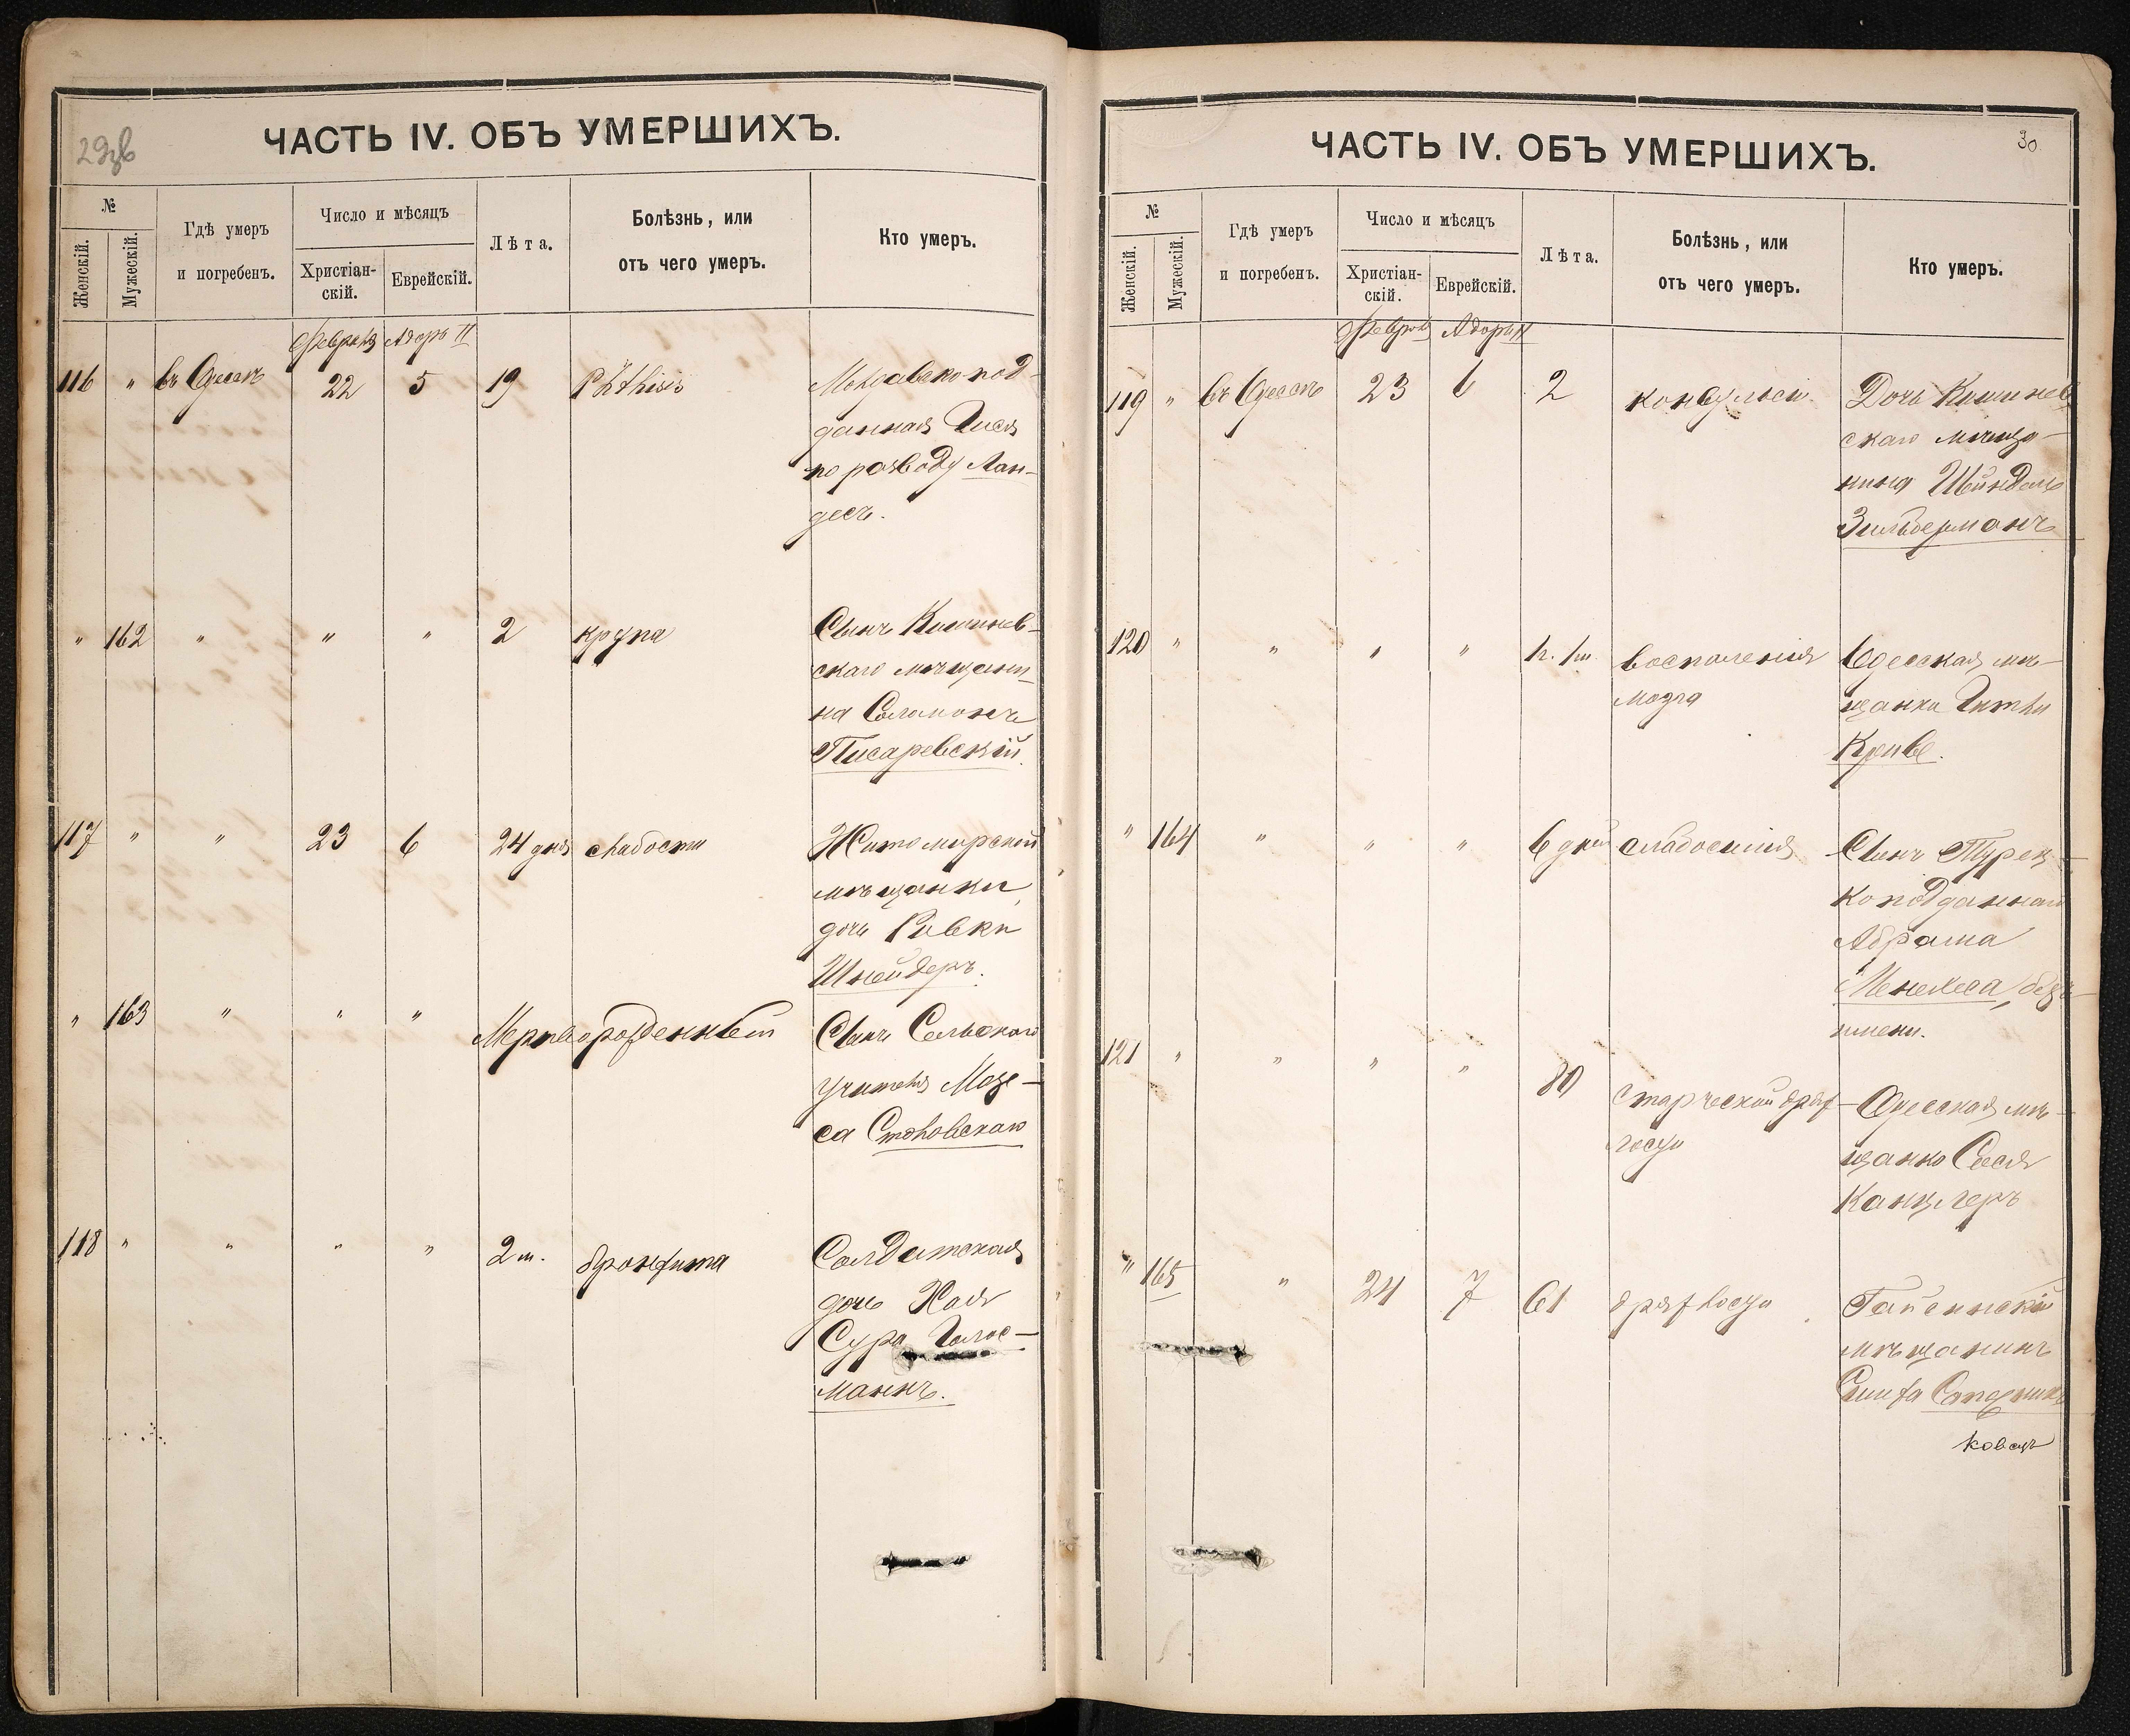 29зв
ЧАСТЬ IV. ОБЪ УМЕРШИХЪ.
№
Женскій.
Мужескій.
Гдѣ умеръ
и погребенъ.
Число и мѣсяцъ
Христіан-
скій.
Еврейскій.
Лѣта.
Болѣзнь, или
отъ чего умеръ.
Кто умеръ.
Февраля Адоръ II
116 " въ Одессѣ 22 5 19 Phthisis Молдавскопод-
данная
по разводу Лан-
десъ.
" 162 " " " 2 крупа Сынъ Кишинев-
скаго мѣщани-
на Соломонъ
Писаревскій.
117 " " 23 6 24 дня слабости Житомирской
мѣщанки,
дочь Ривки
Шнейдеръ.
" 163 " " " Мертворожденный Сынъ Сельскаго
учителя Мозе-
са Столовскаго
118 " " " " 2 м. бронхита Солдатская
дочь Хая
Сура Голос-
манъ.
30
ЧАСТЬ IV. ОБЪ УМЕРШИХЪ.
№
Женскій.
Мужескій.
Гдѣ умеръ
и погребенъ.
Число и мѣсяцъ
Христіан-
скій.
Еврейскій.
Лѣта.
Болѣзнь, или
отъ чего умеръ.
Кто умеръ.
Февраля Адоръ II
119 " въ Одессѣ 23 6 2 конвульсіи Дочь Кишинев
скаго мѣща-
нина Шейндель
Зильберманъ
120 " " " " воспаленія Одесская мѣ-
мозга щанка
Крива.
" 164 " " " 6 дней слабосилія Сынъ Турец-
коподданнаго
Абрама
Менелеса, безъ
имени.
121 " " " " 80 старческой дрях- Одесская мѣ-
лости щанка Сося
Канцлеръ
" 165 " 24 7 61 дряхлости Гайсинскій
мѣщанинъ
Симха Сапожни
ковъ